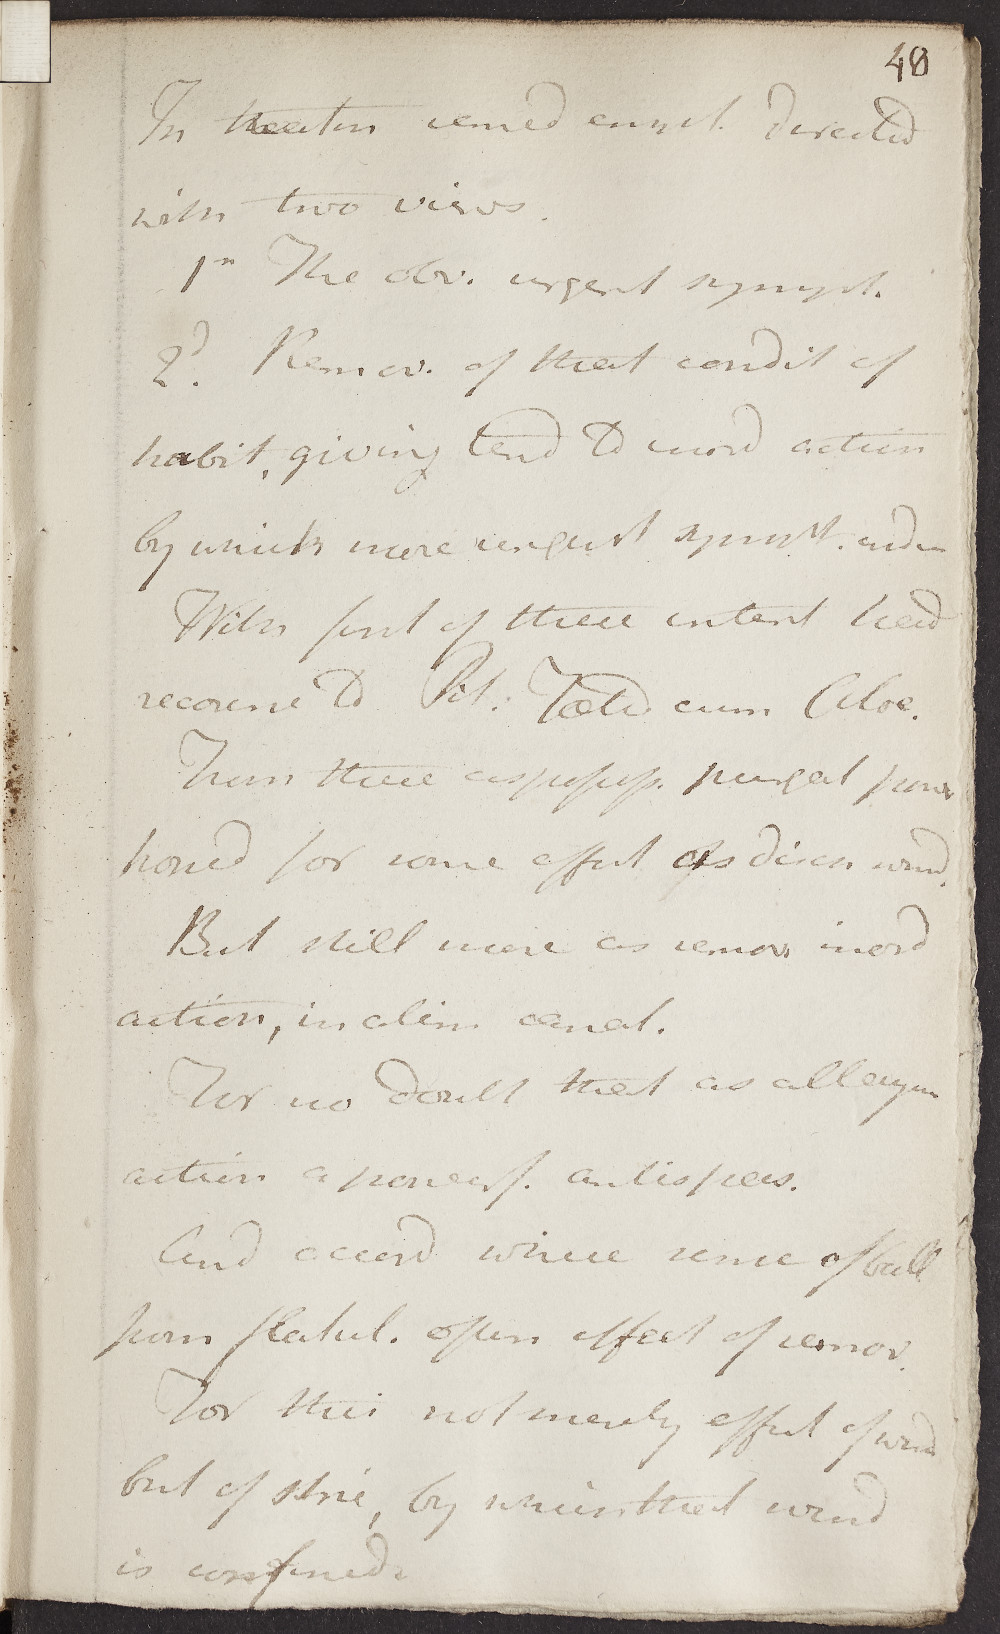 48
In treatm remed empl. directed
with two views.
1st The obv. urgent sympt.
2d. Remov. of that condit of
habit, giving tend to inord action
by which more urgent sympt. induc
With first of these intent had
recourse to Pil: Foetid cum Aloe.
From these as possess. purgat power
hoped for some effect as disch wind.
But still more as remov inord
action, in alim canal.
For no doubt that as
action a powerf. antispas.
And accord where sense of ball
from flatul. often effect of remov.
For this not merely effect of wind
but of stric, by which that wind
is confined.